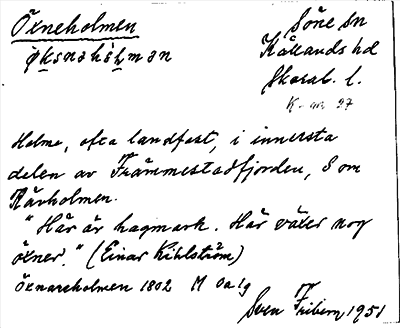 Öxneholmen
Söne sn
øksnəhòl̥mən
Kållands hd
Skarab. l.
K. nr. 37
Holme, ofta landfast, i innersta
delen av Frammestadfjorden, S om
Rävholmen.
"Här är hagmark. Här växer nog
öxner." (Einar Kihlström)
Öxnareholmen 1802 M Oa 1g
Sven Friberg 1951